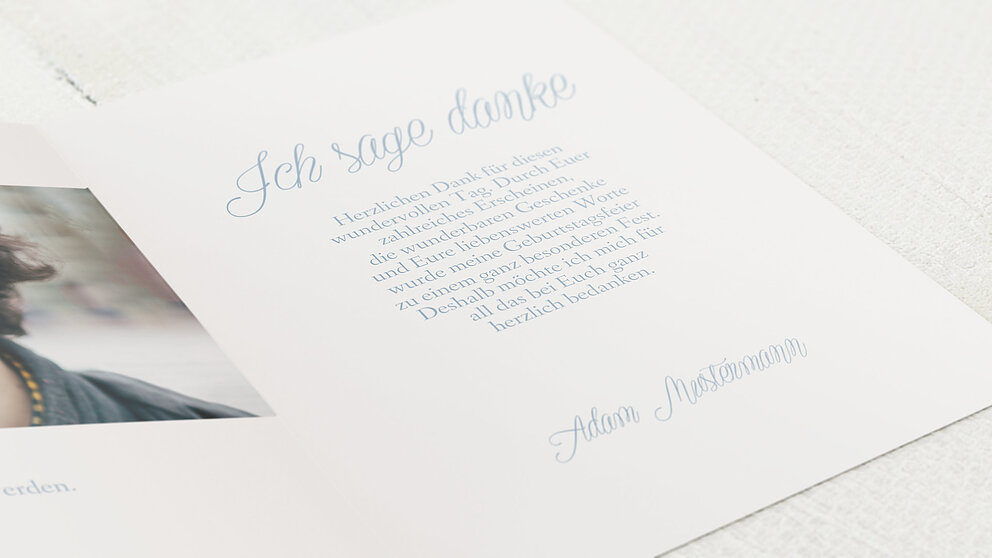 Ich sage danke
Herzlichen Dank für diesen
wundervollen Tag. Durch Euer
zahlreiches Erscheinen,
die wunderbaren Geschenke
und Eure liebenswerten Worte
wurde meine Geburtstagsfeier
zu einem ganz besonderen Fest.
Deshalb möchte ich mich für
all das bei Euch ganz
herzlich bedanken.
Adam Mustermann
erden.